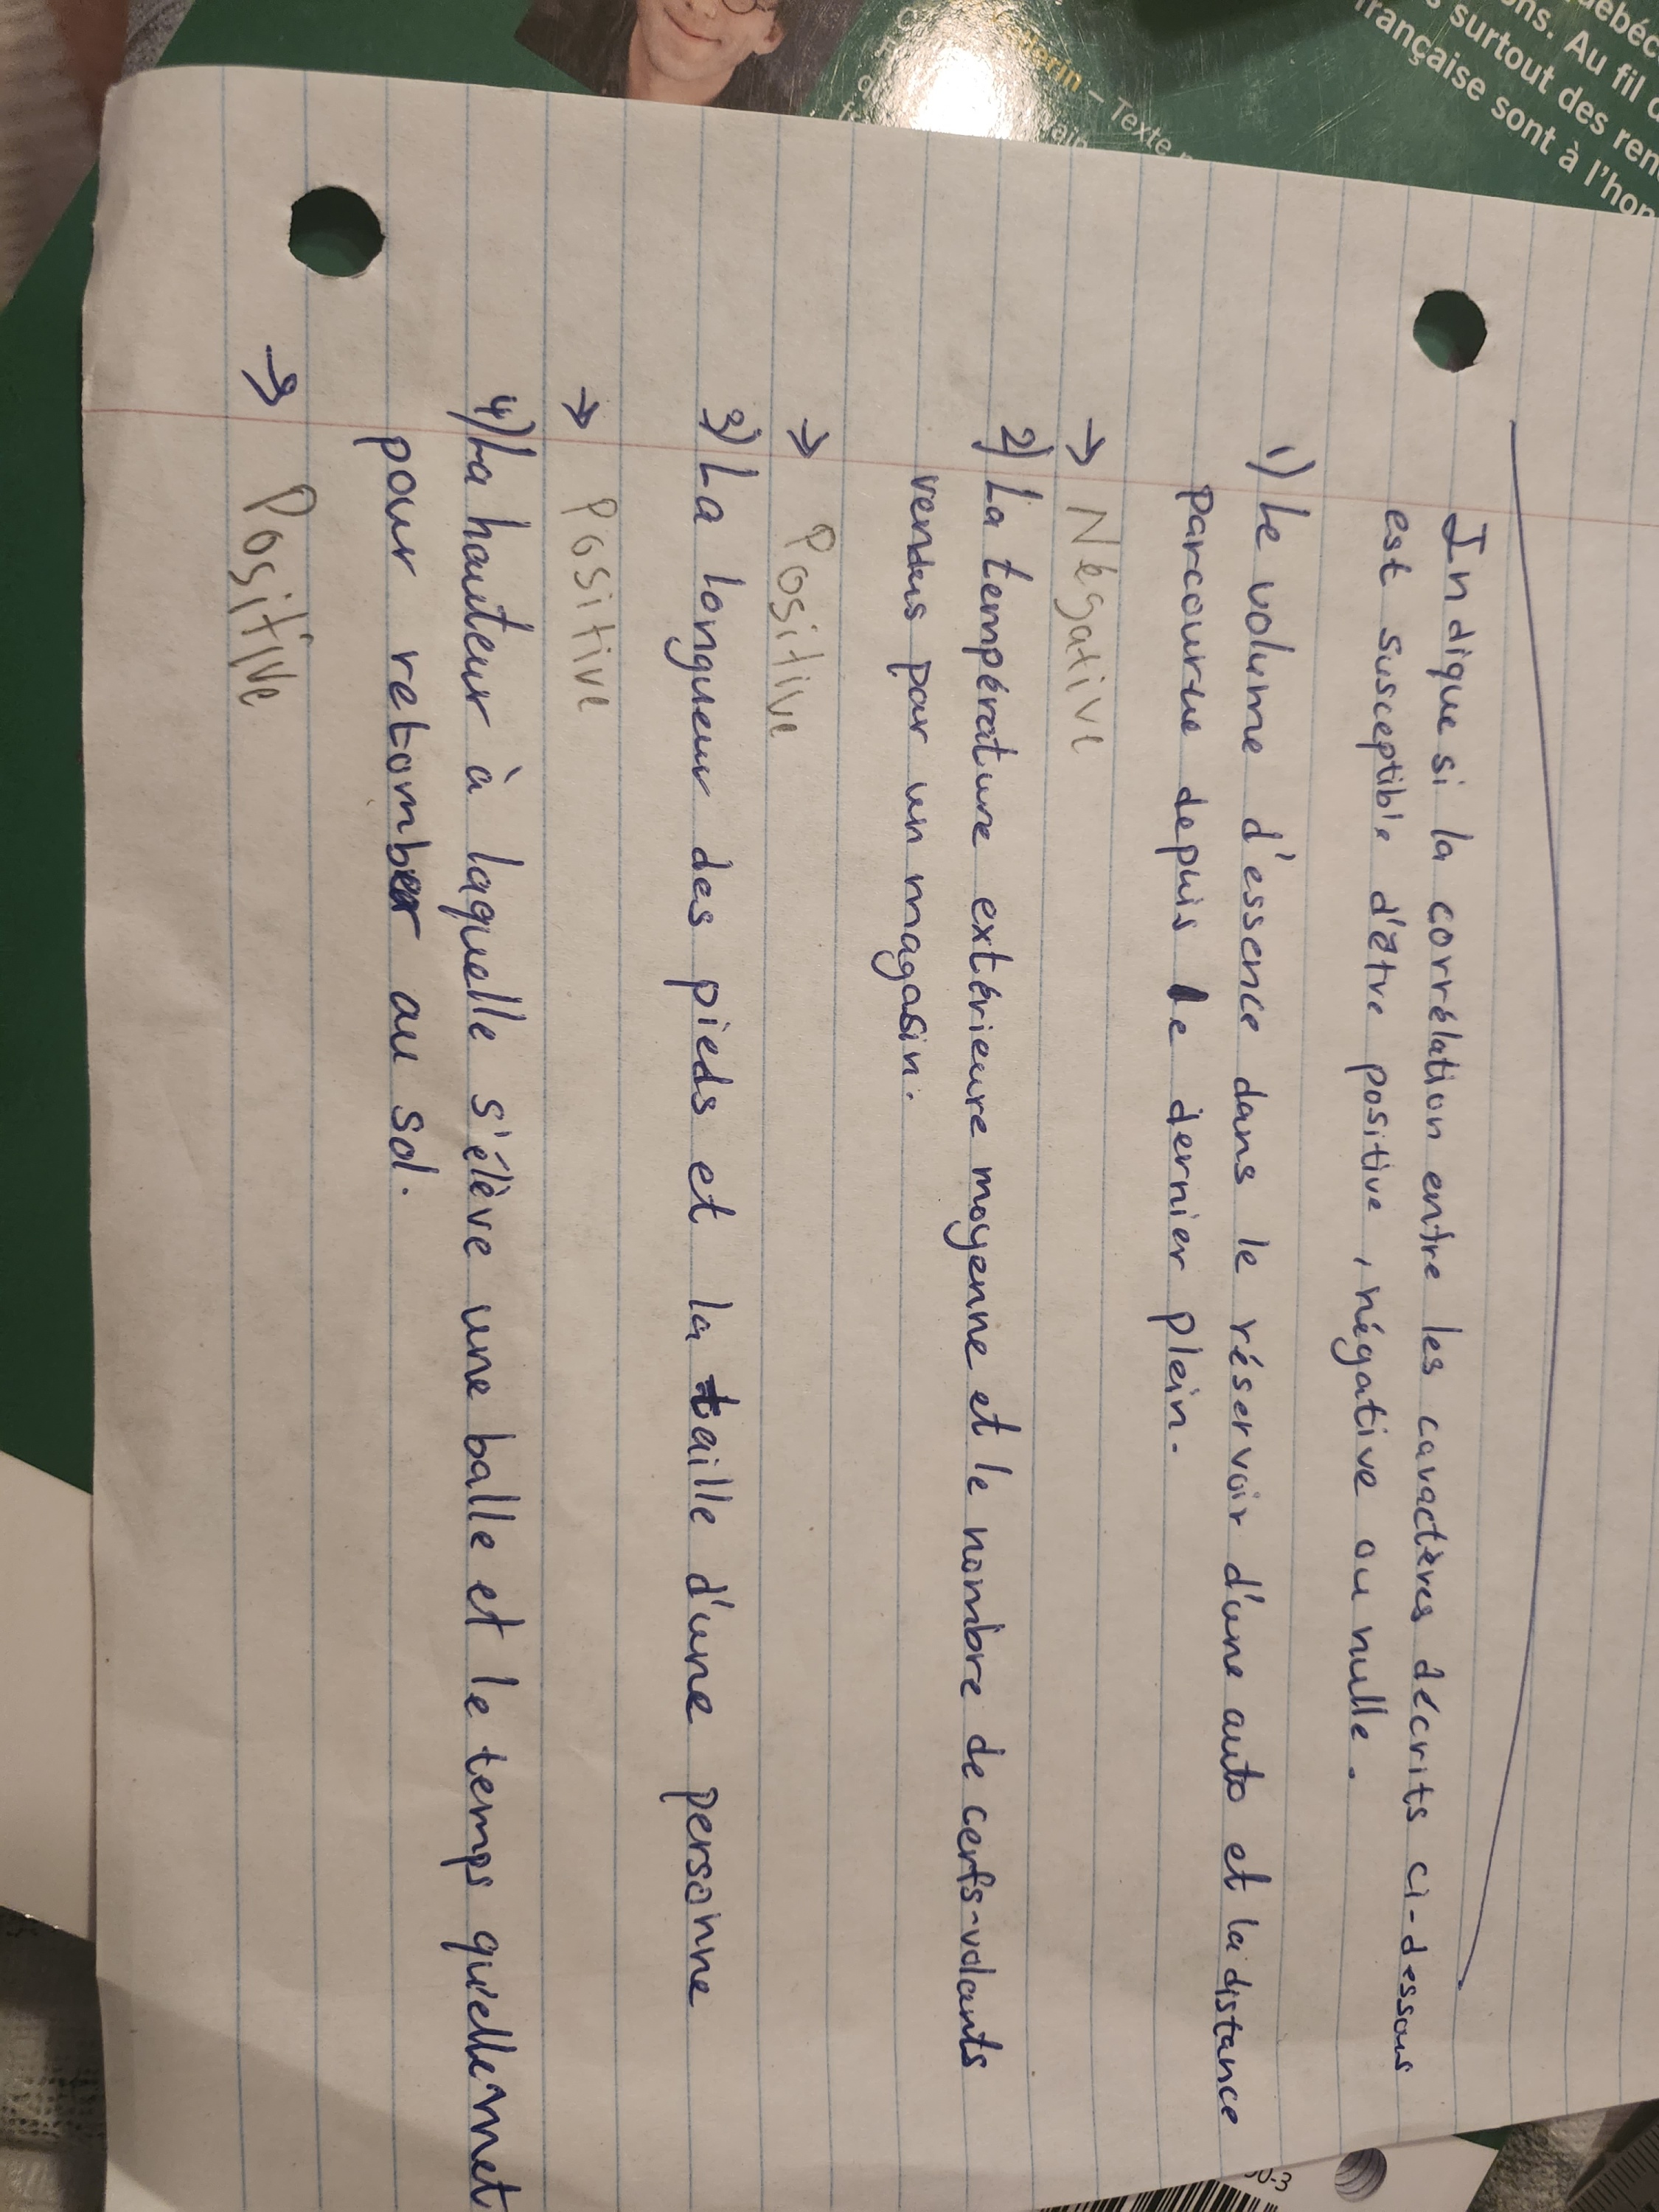 Indique si la corrélation entre les caractères décrits ci-dessous
est susceptible d'être positive, négative ou nulle.
1) Le volume d'essence dans le réservoir d'une auto et la distance
parcourue depuis le dernier plein.
→ Négative
2) La température extérieure moyenne et le nombre de cerfs-volants
vendus par un magasin.
→ Positive
3) La longueur des pieds et la taille d'une personne
→ Positive
4) La hauteur à laquelle s'élève une balle et le temps qu'elle met
pour retomber au sol.
→ Positive
ons. Au fil
surtout des
française sont à l'hon
– Texte